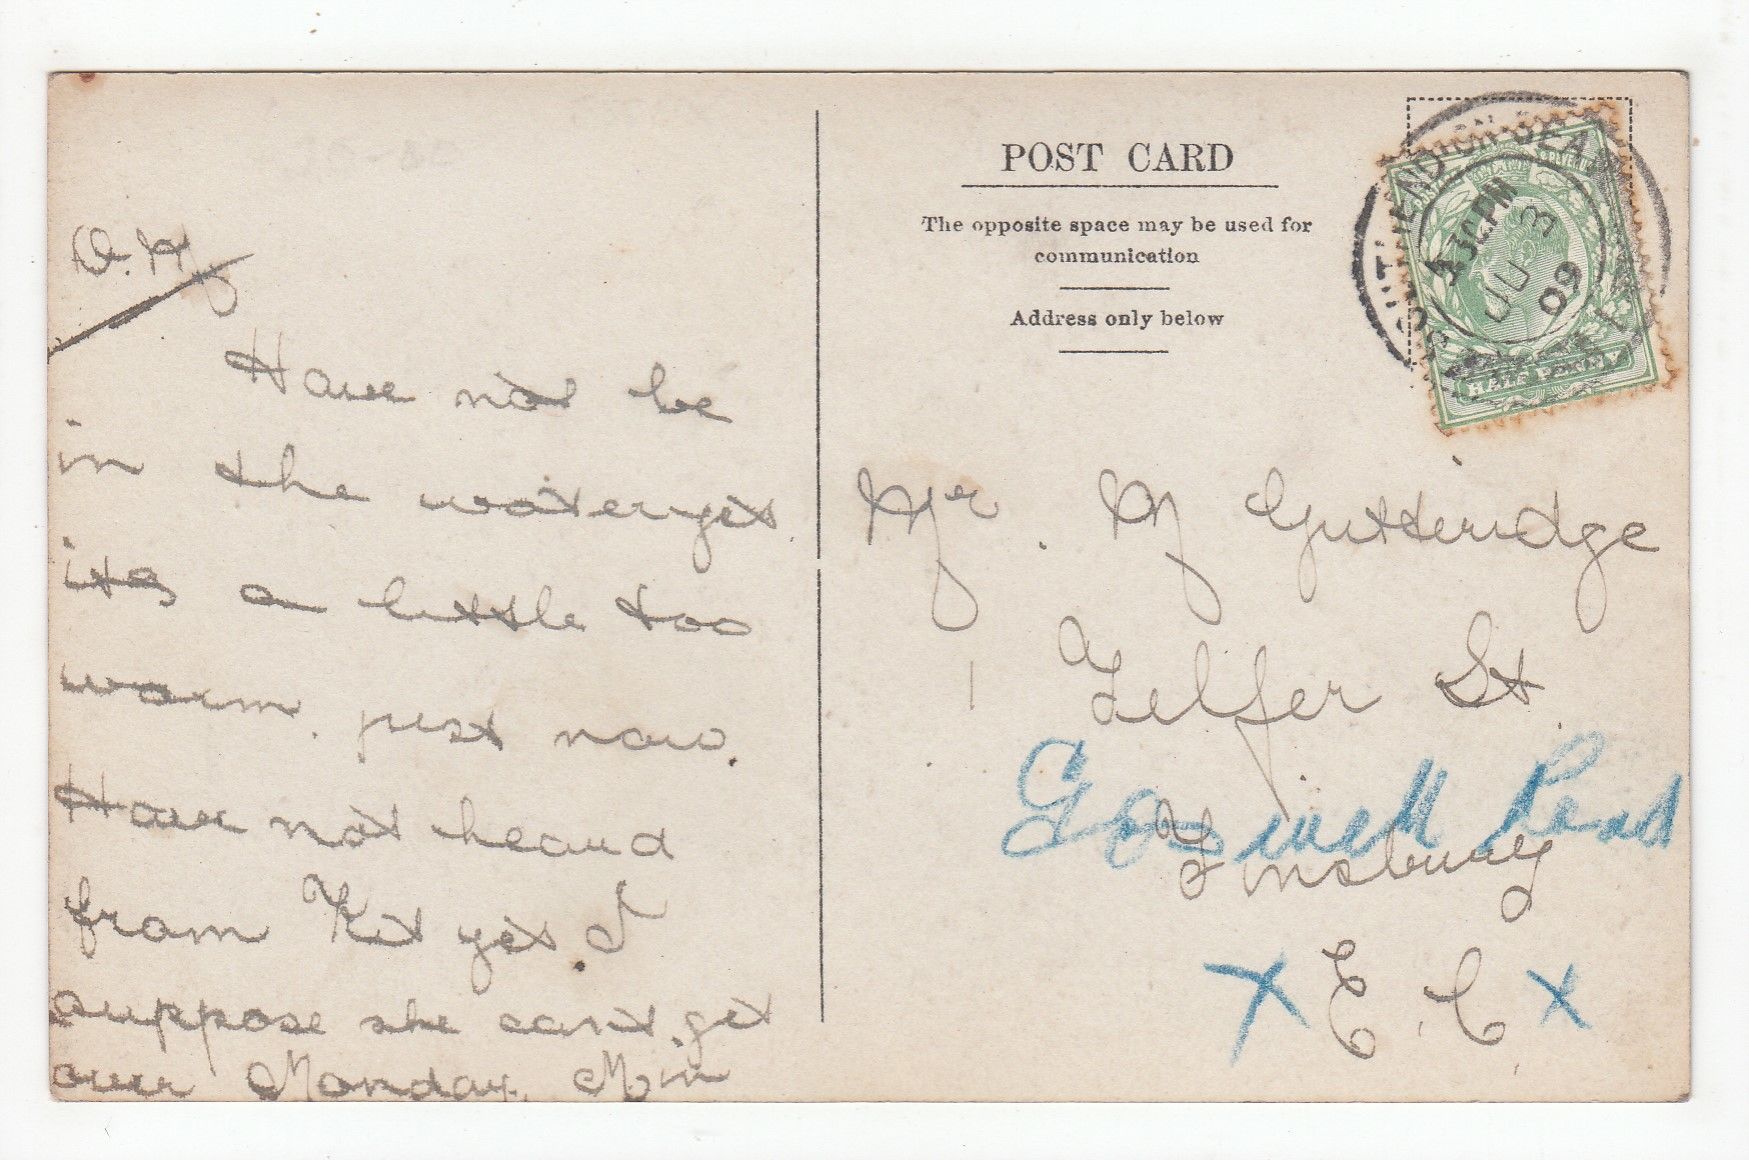 D. M
Have not be
in the water yet
its a little too
warm. just now.
Have not heard
from Kit yet. I
suppose she cant get
over Monday. Min
POST CARD
The opposite space may be used for
communication
Address only below
SOUTHEND-ON-SEA
1 30 PM
JU 3
09
HALF PENNY
Mr. M Gutteridge
1 Telfer St.
Goswell Road
Finsbury
X E. C. X